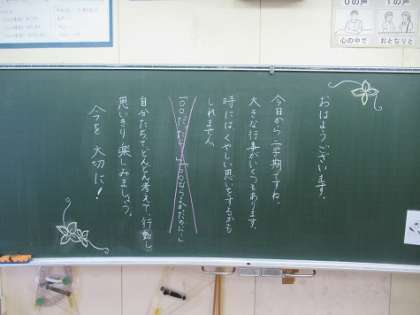 おはようございます。
今日から二学期ですね。
大きな行事がいくつもあります。
時にはくやしい思いをするかも
しれません。
自分たちでどんどん考えて、行動し
思いきり楽しみましょう。
今を大切に!
0の声
心の中で
1の声
おとなりと